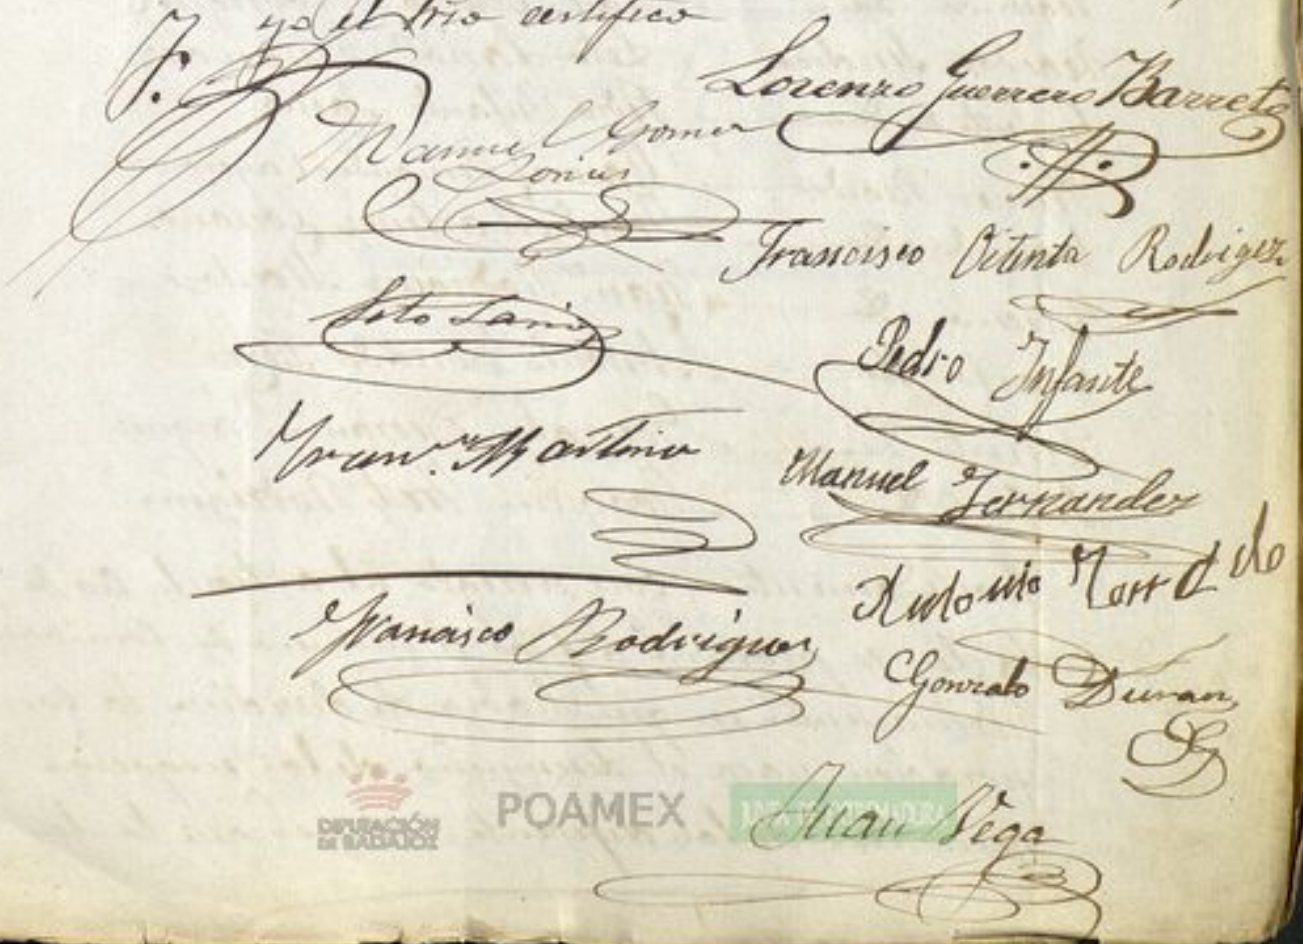 yo el Srio certifico
Lorenzo Guerrero Barreto
Manuel Gomez
Francisco Vitenta Rodrigez
Soto
Pedro Infante
Franco. Martinez
Manuel Fernandez
Antonio
Francisco Rodriguez
Gonzalo Duran
Juan Vega
DIPUTACIÓN
DE BADAJOZ
POAMEX